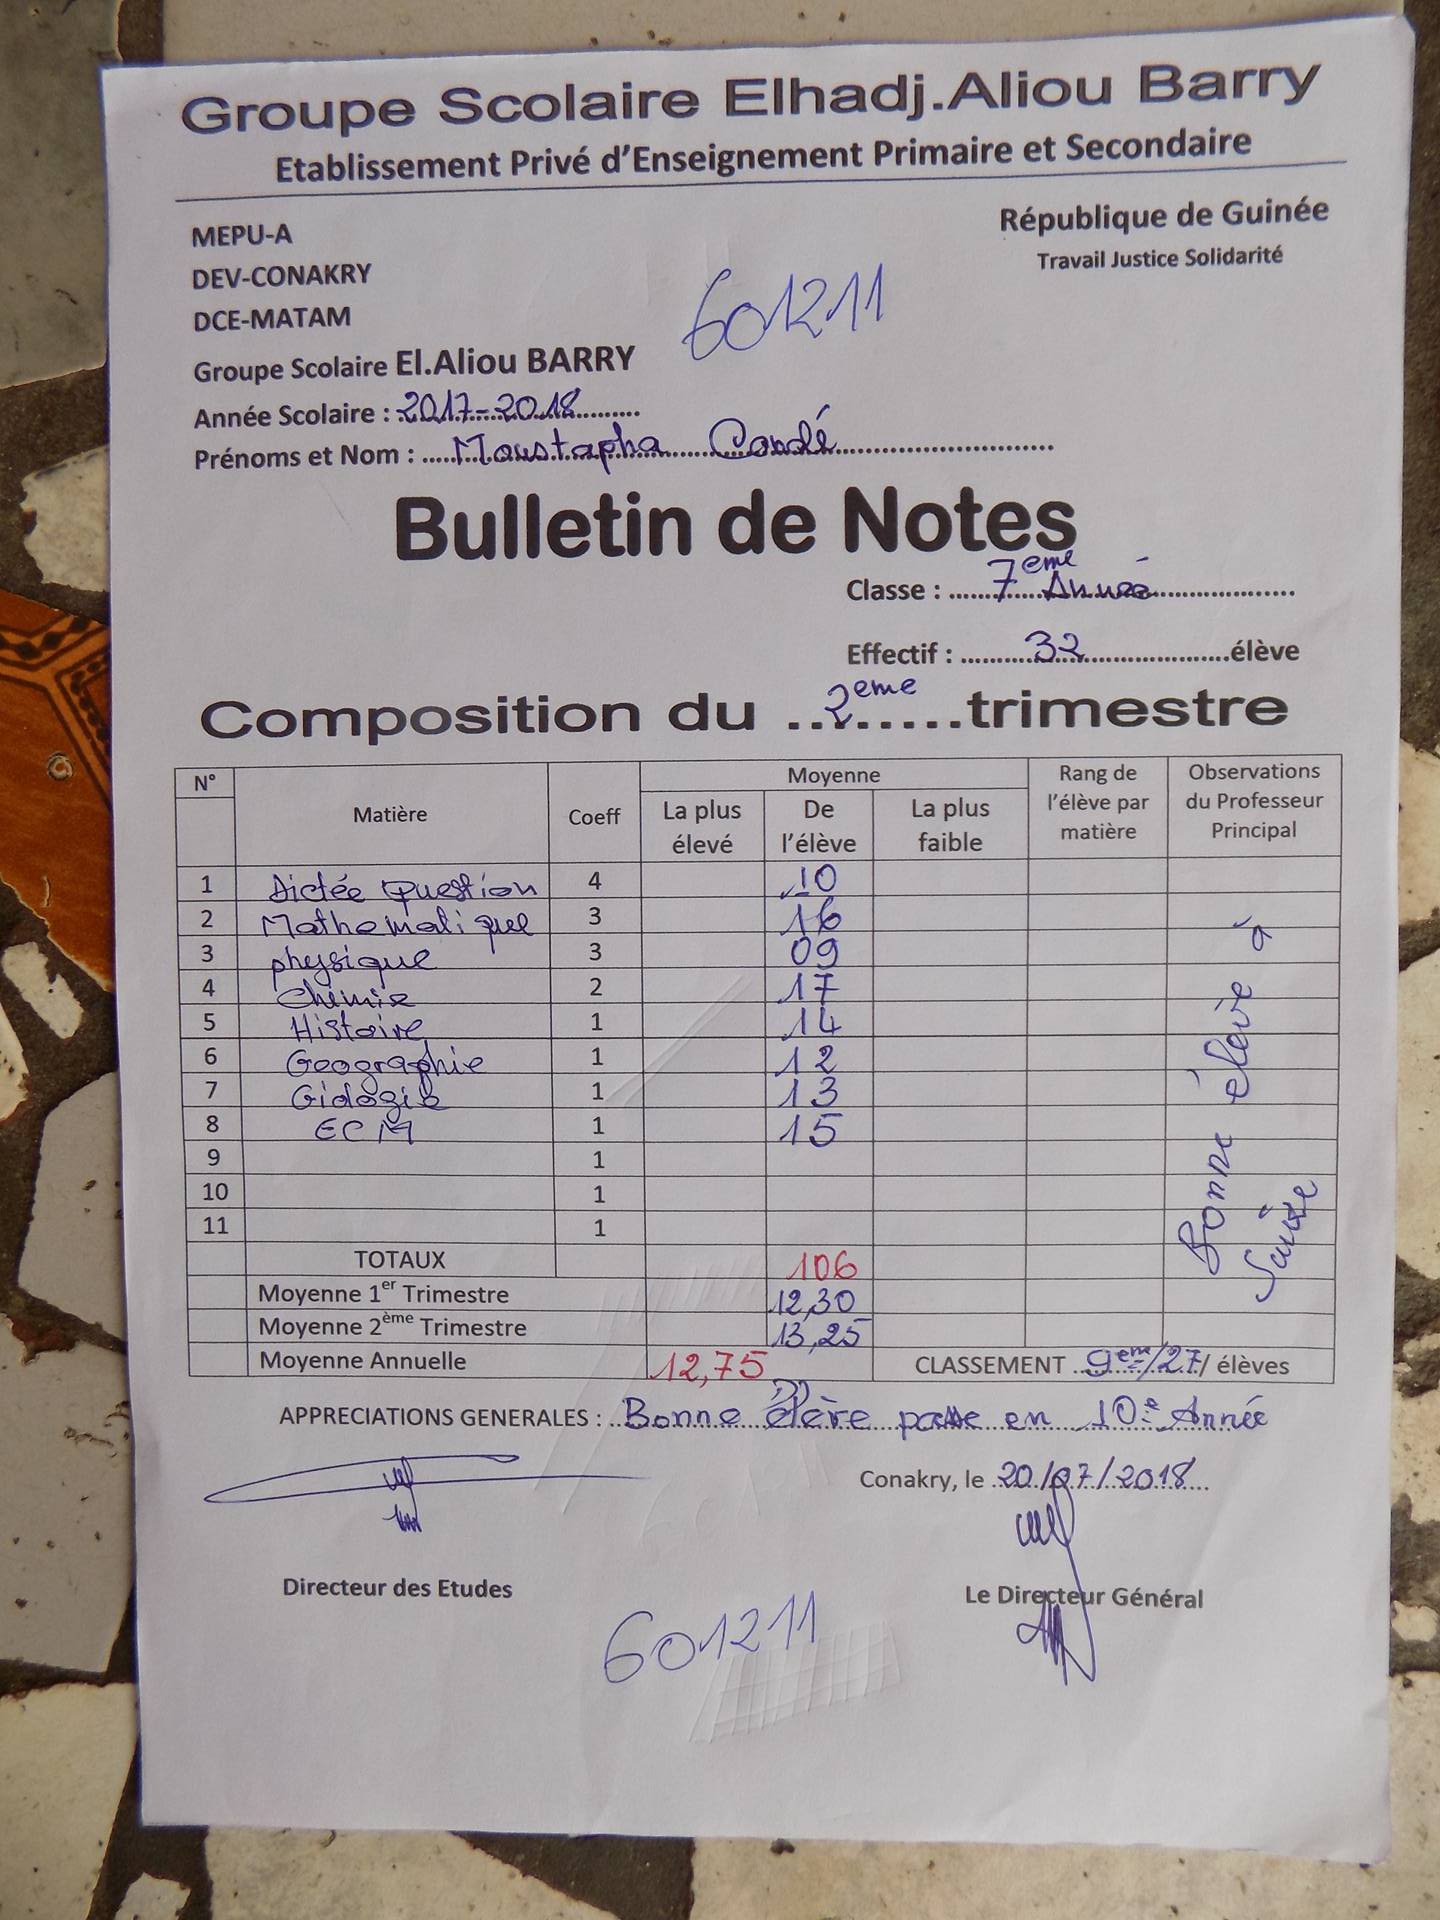 Groupe Scolaire Elhadj.Aliou Barry
Etablissement Privé d'Enseignement Primaire et Secondaire
MEPU-A
République de Guinée
DEV-CONAKRY
Travail Justice Solidarité
DCE-MATAM
601211
Groupe Scolaire El.Aliou BARRY
Année Scolaire : 2017-2018
Prénoms et Nom : Moustapha Condé
Bulletin de Notes
Classe : 7eme Année
Effectif : 32 élève
Composition du 2eme trimestre
N° Matière Coeff Moyenne Rang de l'élève par matière Observations du Professeur Principal
La plus élevé De l'élève La plus faible
1 Dictée Question 4 10
2 Mathematique 3 16
3 physique 3 09
4 Chimie 2 17
5 Histoire 1 14
6 Geographie 1 12
7 1 13
8 ECM 1 15
9 1
10 1
11 1
Bonne élève à
Suivre
TOTAUX 106
Moyenne 1er Trimestre 12,30
Moyenne 2ème Trimestre 13,25
Moyenne Annuelle 12,75 CLASSEMENT 9eme/27/ élèves
APPRECIATIONS GENERALES : Bonne élève passe en 10e Année
Conakry, le 20/07/2018
Directeur des Etudes
Le Directeur Général
601211